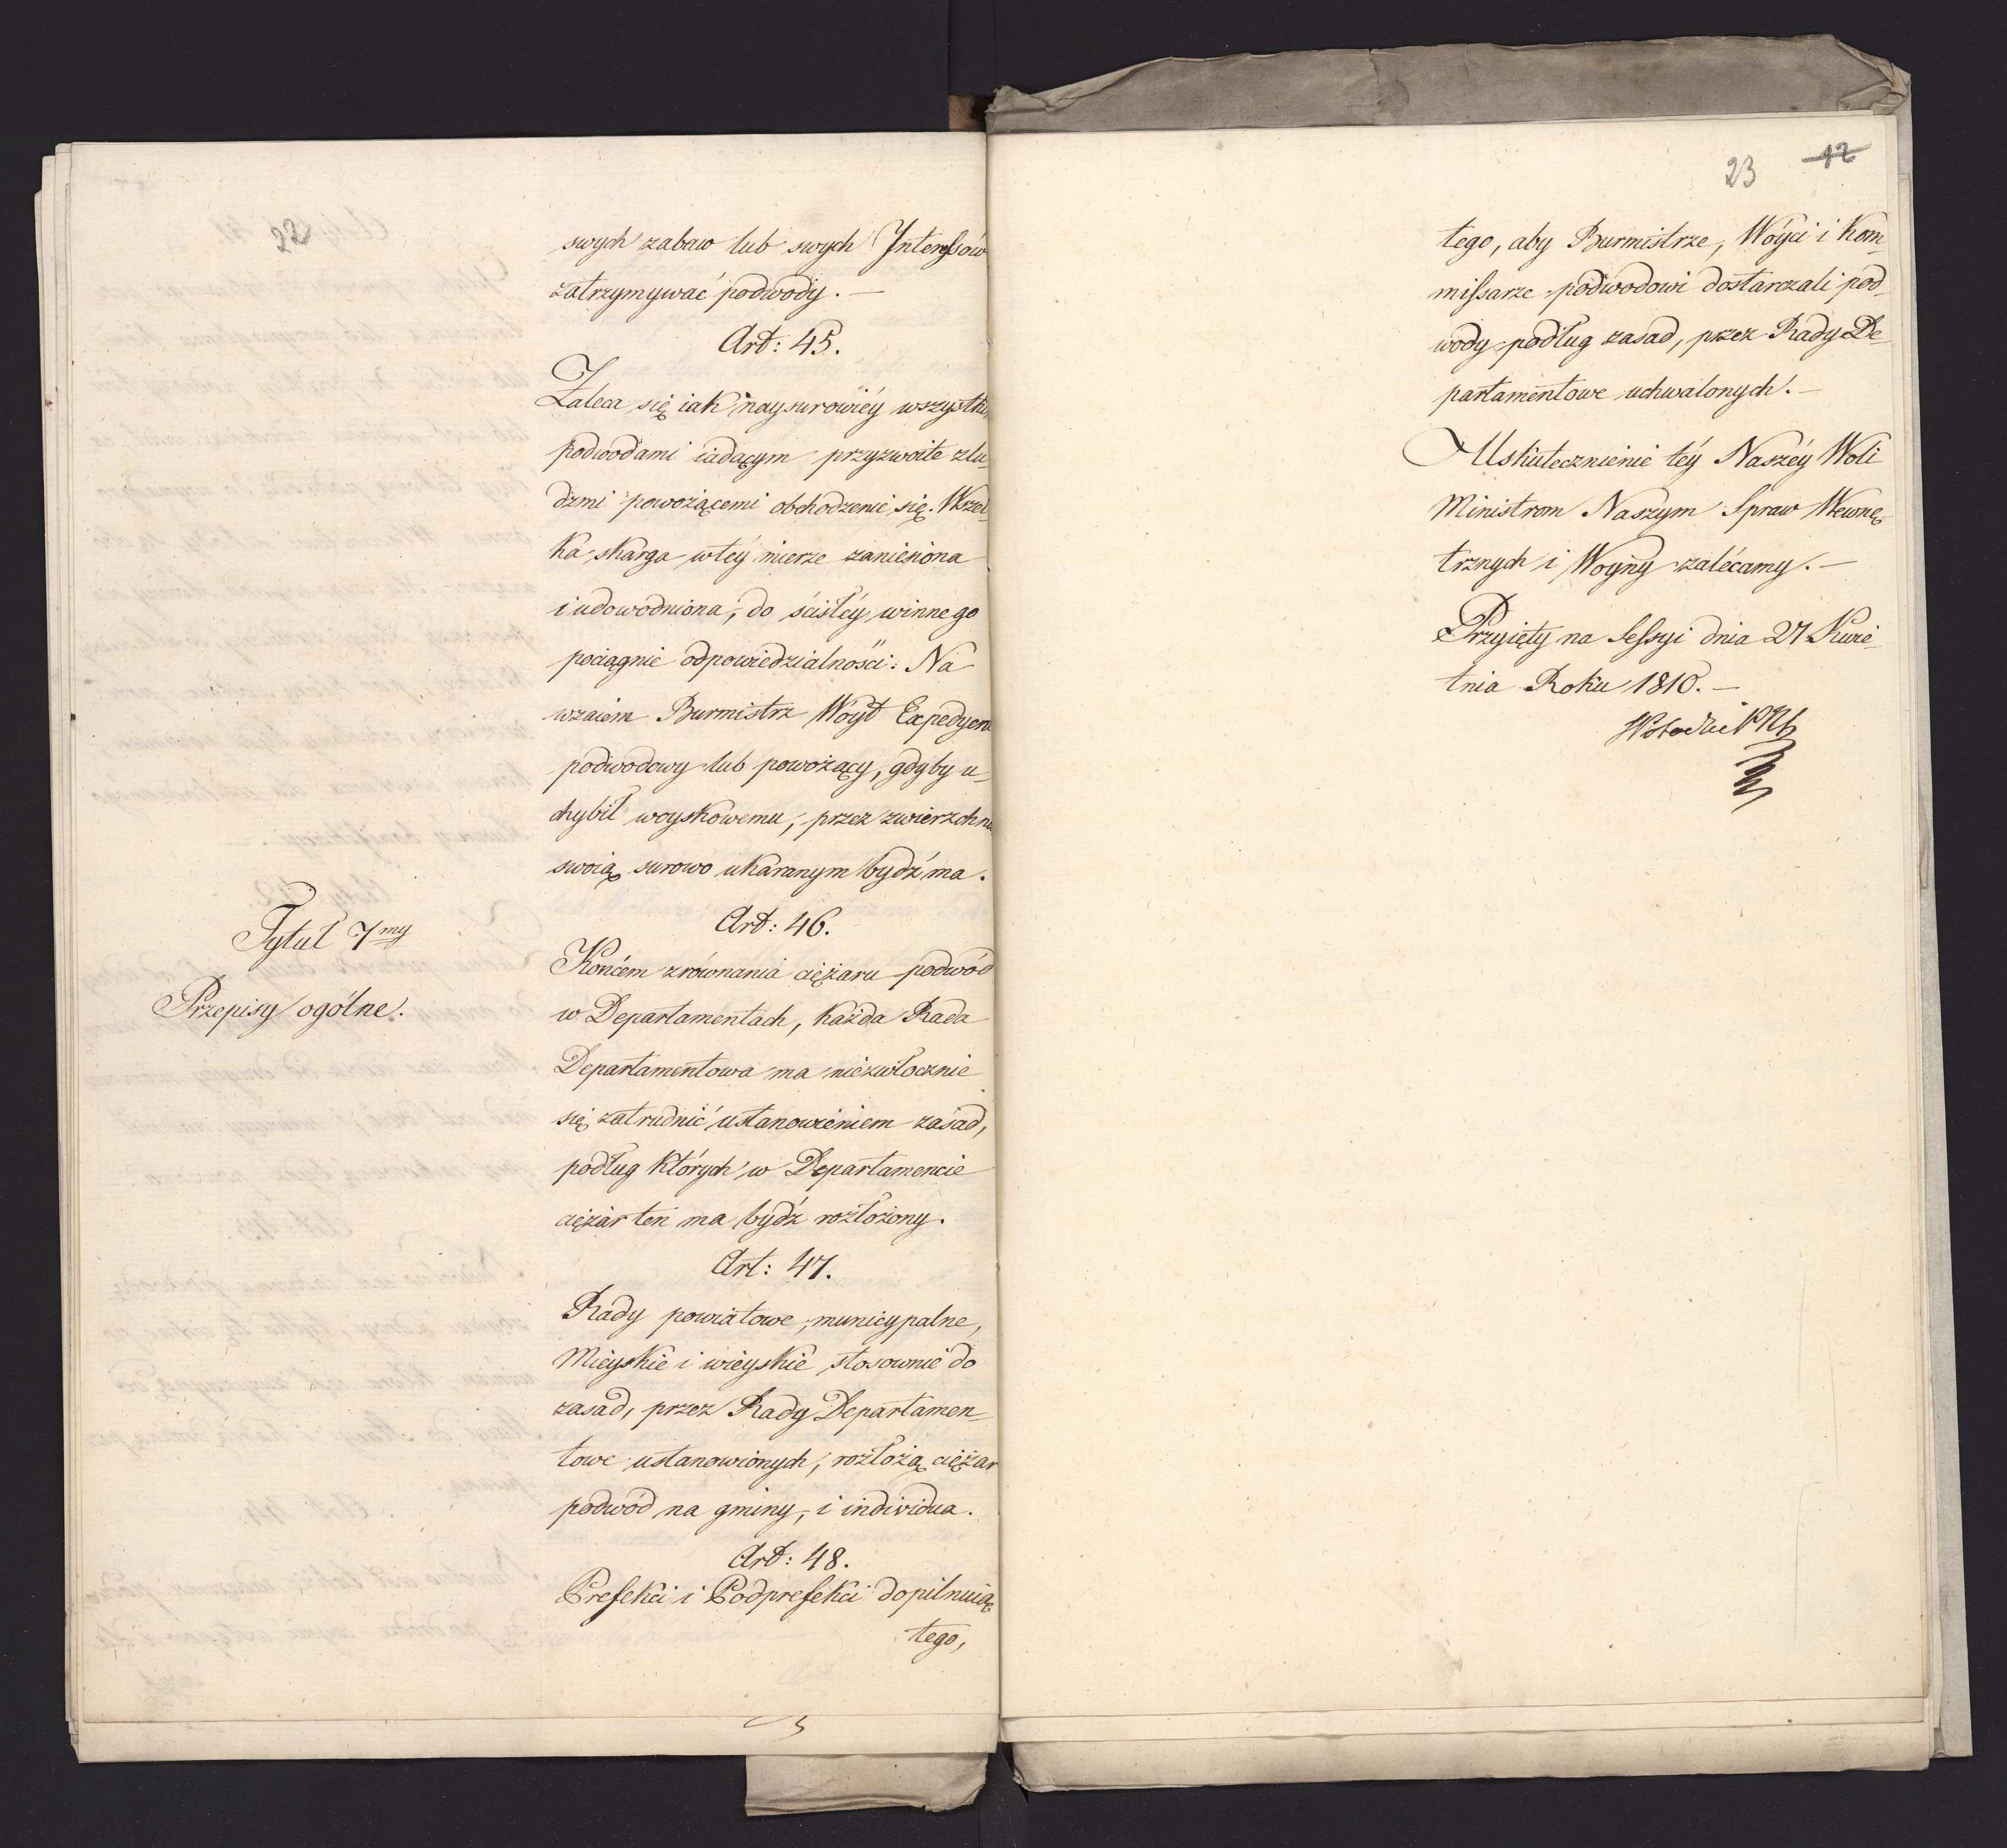 22
swych zabaw lub swych Interessów
zatrzymywać podwody. —
Art: 45.
Zaleca się iak naysurowiéy wszystkim
podwodami iadącym przyzwoite z lu-
dzmi powożącemi obchodzenie się. Wszel-
ka skarga w téy mierze zaniesiona
i udowodniona, do ścisłéy winnego
pociągnie odpowiedzialności: Na-
wzaiem Burmistrz Wóyt Expedyent
podwodowy lub powożący, gdyby u-
chybił woyskowemu, przez zwierzchność
swoią surowo ukaranym bydź ma.
Tytuł 7my
Przepisy ogólne.
Art: 46.
Końcem zrównania ciężaru podwód
w Departamentach, każda Rada
Departamentowa ma niezwłocznie
się zatrudnić ustanowieniem zasad,
podług których w Departamencie
ciężar ten ma bydź rozłożony.
Art: 47.
Rady powiatowe, municypalne,
Mieyskie i wieyskie stosownie do
zasad, przez Rady Departamen-
towe ustanowionych, rozłożą ciężar
podwód na gminy, i individua.
Art: 48.
Prefekci i Podprefekci dopilnuią
tego,
23 12
tego, aby Burmistrze, Wóyci i Kom-
missarze podwodowi dostarczali pod-
wody podług zasad, przez Rady De-
partamentowe uchwalonych. —
Uskutecznienie téy Naszéy Woli
Ministrom Naszym Spraw Wewnę-
trznych i Woyny zalécamy. —
Przyięty na Sessyi dnia 27 Kwie-
tnia Roku 1810. —